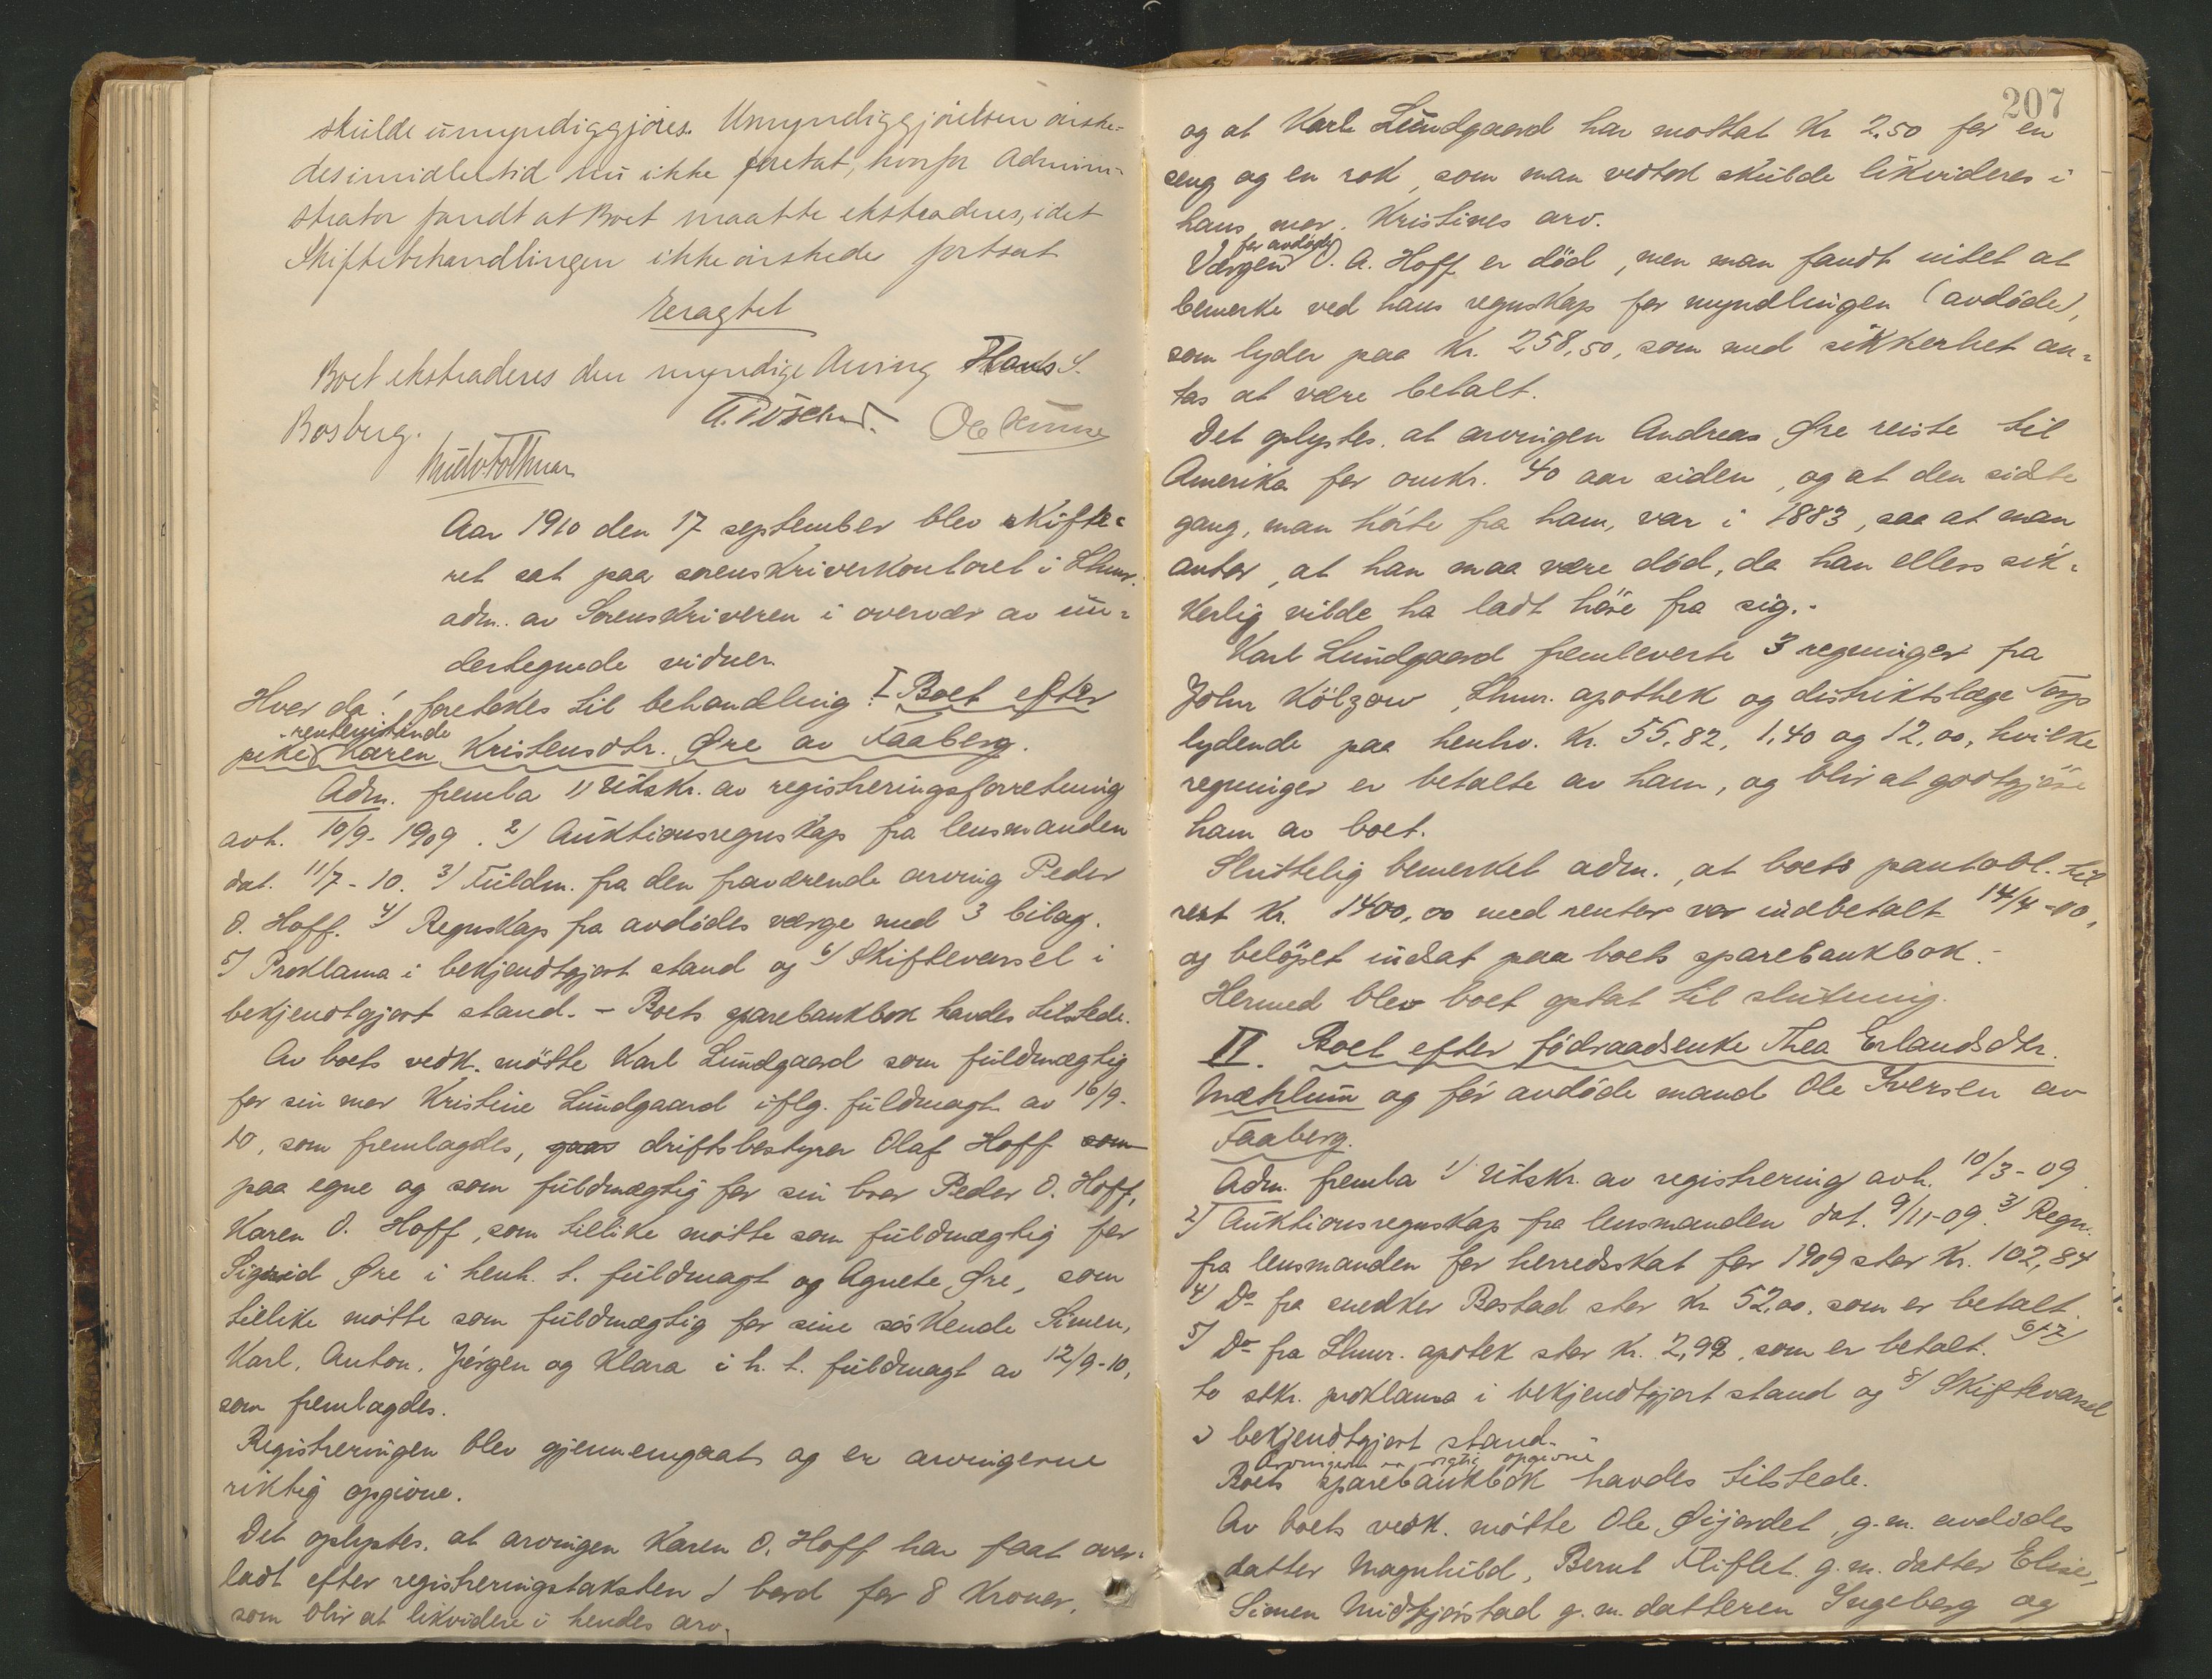 skulde umyndiggjøres. Umyndiggjørelsen önske-
des imidlertid nu ikke foretat, hvorfor Admini-
strator fandt at Boet maatte ekstraderes, idet
Skiftebehandlingen ikke önskedes fortsat
Eragtet
Boet ekstraderes den myndige Arving Hans S.
Bosberg.
Aar 1910 den 17 september blev skifte-
ret sat paa sorenskriverkontoret i Lhmr.
adm. av Sorenskriveren i overvær av un-
dertegnede vidner.
Hvor da! foretokes til behandling: I Boet efter
rentenistinde
pike Karen Kristensdtr. Øre av Faaberg.
Adm. fremla 1) Utskr. av registreringsforretning
avh. 10/9-1909. 2) Auktionsregnskap fra lensmanden
dat. 11/7-10. 3) Fuldm. fra den fraværende arving Peder
O. Hoff. 4) Regnskap fra avdödes værge med 3 bilag.
5) Proklama i bekjendtgjort stand og 6) Skiftevarsel i
bekjendtgjort stand. - Boets sparebankbok havdes tilstede.
Av boets vedk. mötte Karl Lundgaard som fuldmægtig
for sin mor Kristine Lundgaard iflg. fuldmagt av 16/9-
10, som fremlagdes, driftsbestyrer Olaf Hoff som
paa egne og som fuldmægtig for sin bror Peder O. Hoff,
Karen O. Hoff, som tillike mötte som fuldmægtig for
Sigrid Øre i henh. t. fuldmagt og Agnete Øre, som
tillike mötte som fuldmægtig for sine söskende Simen,
Karl, Anton, Jörgen og Klara i h. t. fuldmagt av 12/9-10,
som fremlagdes.
Registreringen blev gjennemgaat og er arvingerne
riktig opgivne.
Det oplystes, at arvingen Karen O. Hoff har faat over-
ladt efter registreringstaksten 1 bord for 8 Kroner,
som blir at likvidere i hendes arv.
207
og at Karl Lundgaard har mottat Kr 2,50 for en
seng og en rok, som man vedtok skulde likvideres i
hans mor, Kristines arv.
for avdöde
Værgen O. A. Hoff er död, men man fandt intet at
bemerke ved hans regnskap for myndlingen (avdöde),
som lyder paa Kr. 258,50, som med sikkerhet an-
tas at være betalt.
Det oplystes, at arvingen Andreas Øre reiste til
Amerika for omkr. 40 aar siden, og at den sidste
gang, man hörte fra ham, var i 1883, saa at man
antar, at han maa være död, da han ellers sik-
kerlig vilde ha ladt höre fra sig.-
Karl Lundgaard fremleverte 3 regninger fra
John Kölzow, Lhmr. apothek og distriktslæge Torp
lydende paa henhv. Kr. 55,82, 1,40 og 12,00, hvilke
regninger er betalte av ham, og blir at godtgjöre
ham av boet.
Sluttelig bemerket adm., at boets pantobl. til
rest Kr. 1400,00 med renter var indbetalt 14/4-10,
og belöpet indsat paa boets sparebankbok.-
Hermed blev boet optat til slutning.
II. Boet efter födraadsenke Thea Erlandsdtr.
Mæhlum og før avdöde mand Ole Iversen av
Faaberg.
Adm. fremla 1) Utskr. av registrering avh. 10/3-09.
2) Auktionsregnskap fra lensmanden dat. 9/11-09. 3) Regn.
fra lensmanden for herredsskat for 1909 stor Kr. 102,84
4) Do fra snedker Bostad stor Kr 52,00, som er betalt.
5) Do fra Lhmr. apotek stor Kr. 2,92, som er betalt. 6)+7)
to stkr. proklama i bekjendtgjort stand og 8) Skiftevarsel
i bekjendtgjort stand.-
Arvingerne er rigtig opgivne
Boets sparebankbok havdes tilstede.
Av boets vedk. mötte Ole Øijordet, g.m. avdödes
datter Magnhild, Bernt Fliflet g.m. datter Elise,
Simen Midtfjørstad g.m. datteren Ingeborg og